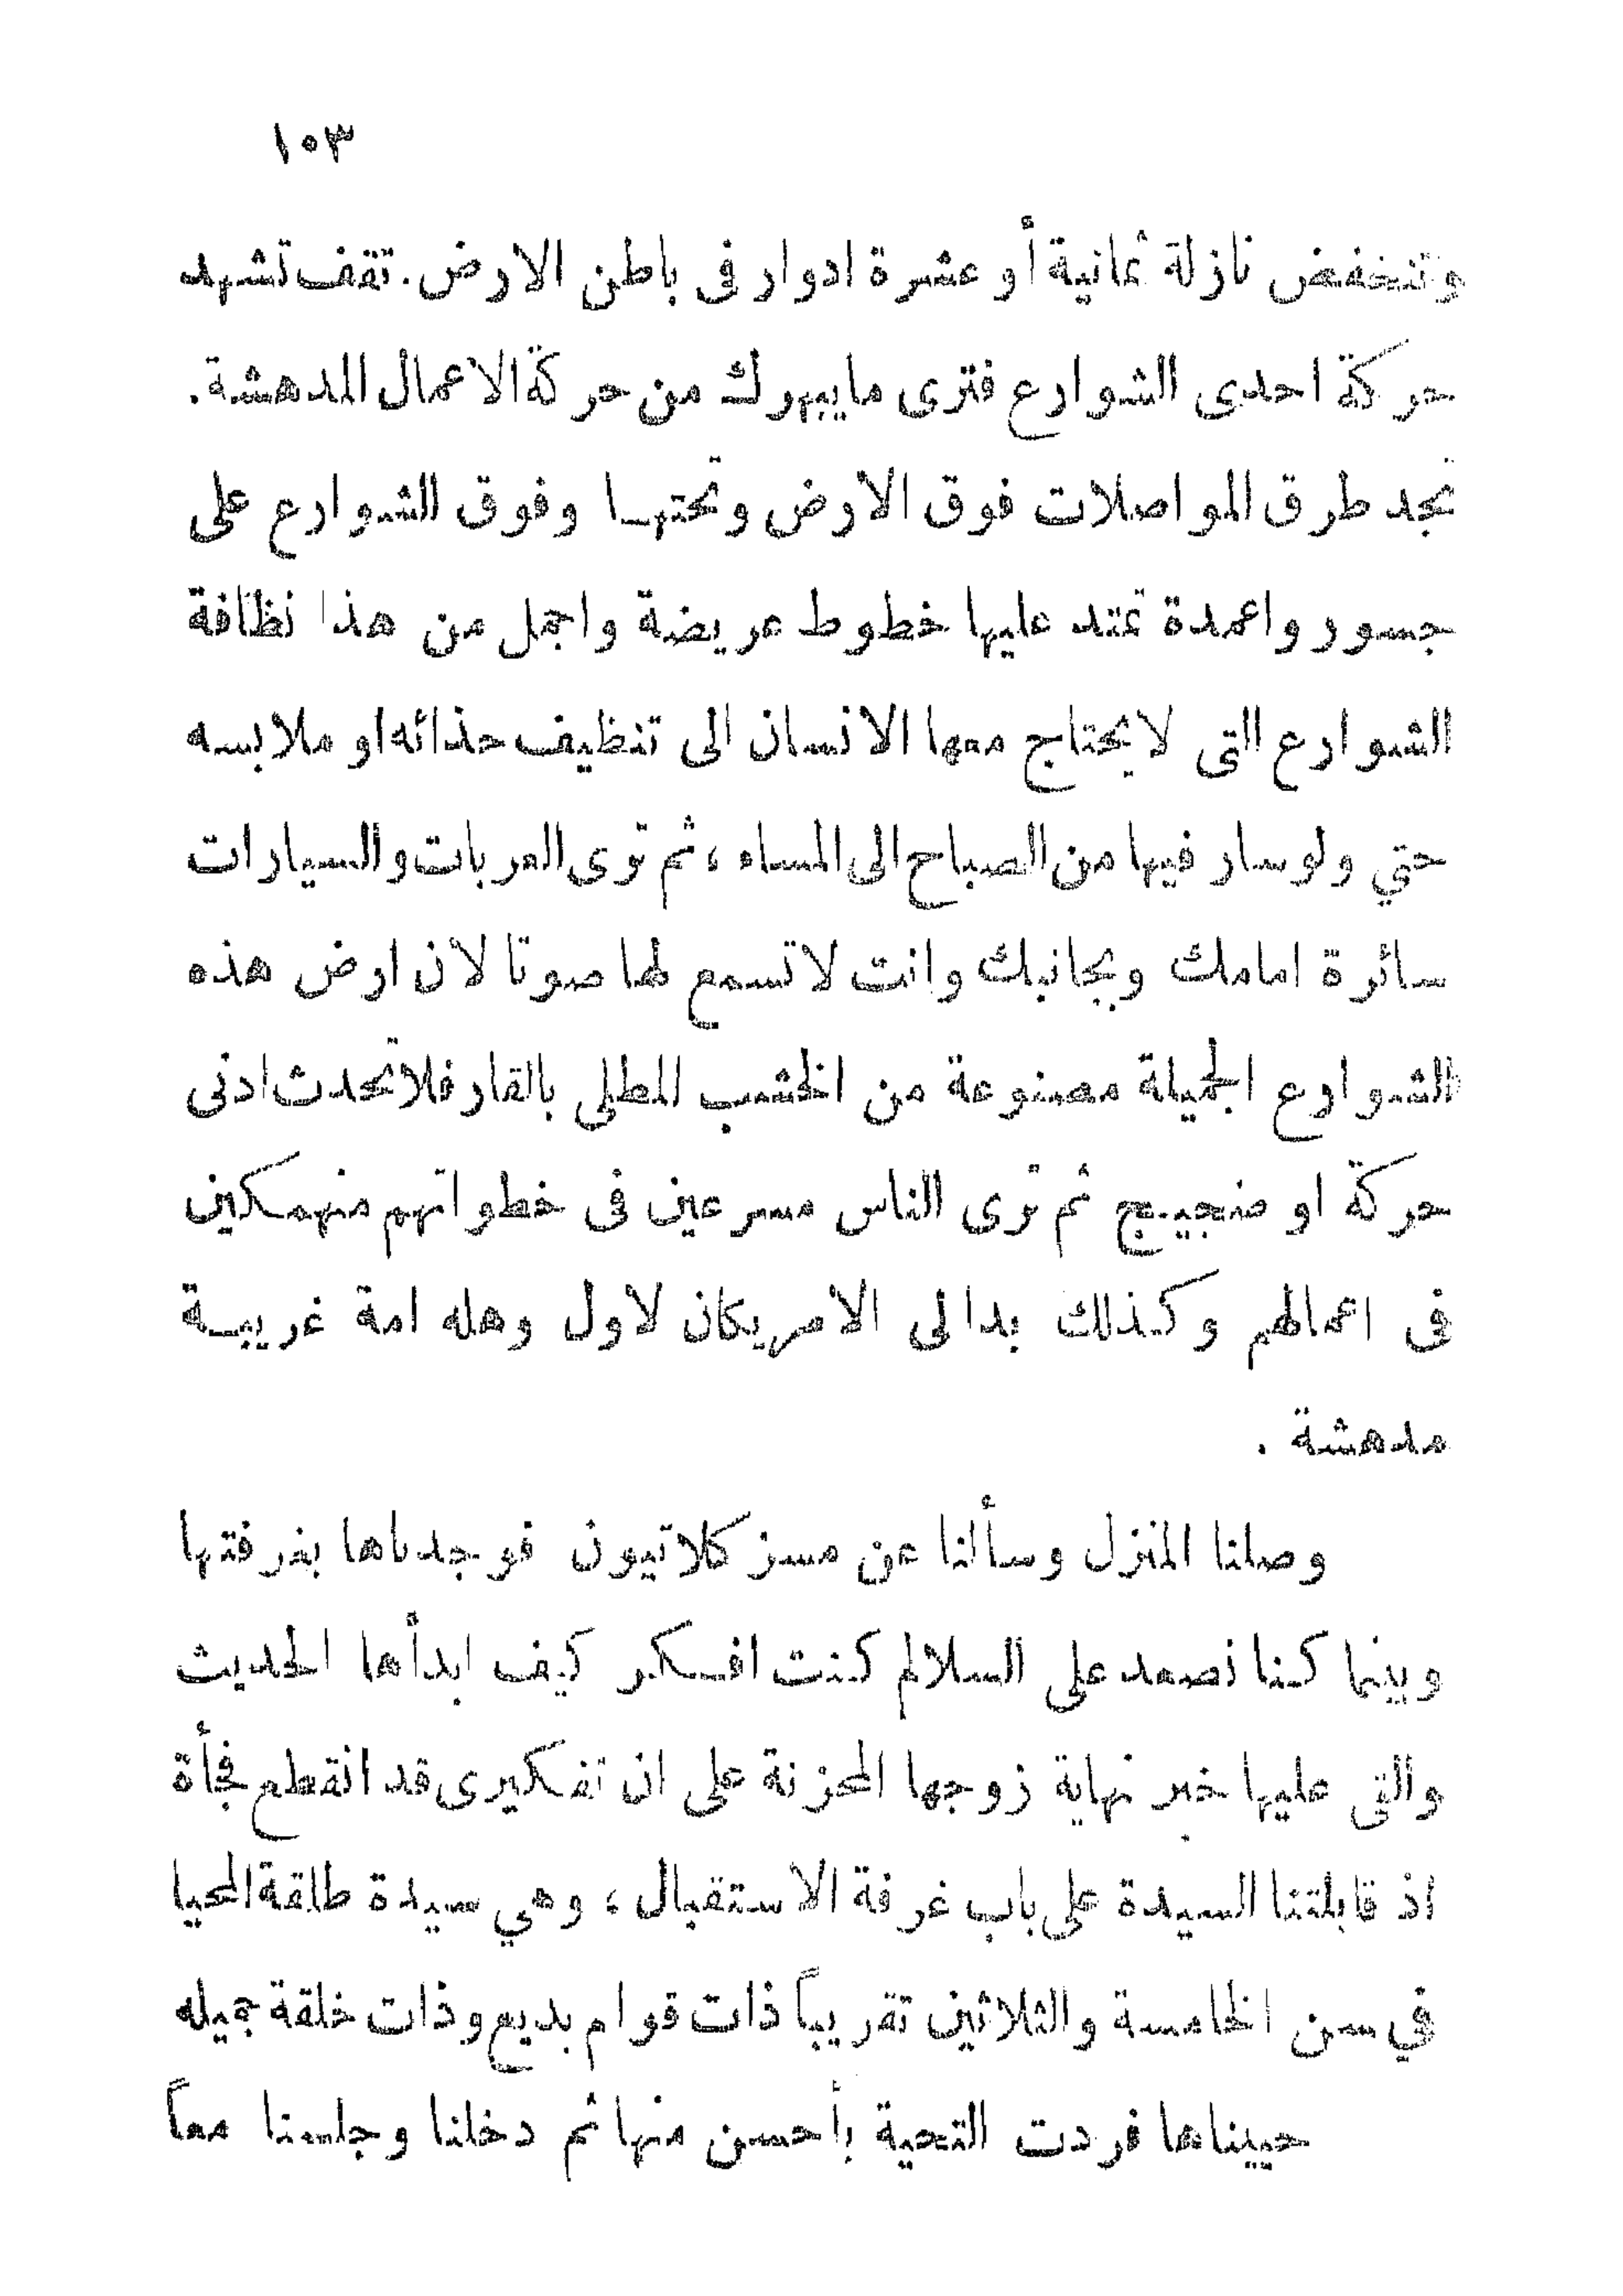 ١٥٣
وتنخفض نازلة ثمانية أو عشرة ادوار فى باطن الارض. تقف تشهد
حركة احدى الشوارع فترى ما يبهرك من حركة الاعمال المدهشة.
تجد طرق المواصلات فوق الارض وتحتها وفوق الشوارع على
جسور واعمدة تمتد عليها خطوط عريضة واجمل من هذا نظافة
الشوارع التى لا يحتاج معها الانسان الى تنظيف حذائه او ملابسه
حتي ولو سار فيها من الصباح الى المساء ، ثم ترى العربات والسيارات
سائرة امامك وبجانبك وانت لا تسمع لها صوتا لان ارض هذه
الشوارع الجميلة مصنوعة من الخشب المطلى بالقار فلا تحدث ادنى
حركة او ضجيج ثم ترى الناس مسرعين فى خطواتهم منهمكين
فى اعمالهم وكذلك بدا لى الامريكان لاول وهله امة غريبة
مدهشة .
وصلنا المنزل وسألنا عن مسز كلاتيون فوجدناها بغرفتها
وبينما كنا نصعد على السلالم كنت افكر كيف ابدأها الحديث
والقى عليها خبر نهاية زوجها المحزنة على ان تفكيرى قد انقطع فجأة
اذ قابلتنا السيدة على باب غرفة الاستقبال ، وهي سيدة طلقة المحيا
في سن الخامسة والثلاثين تقريباً ذات قوام بديع وذات خلقة جميله
حييناها فردت التحية بأحسن منها ثم دخلنا وجلسنا معاً